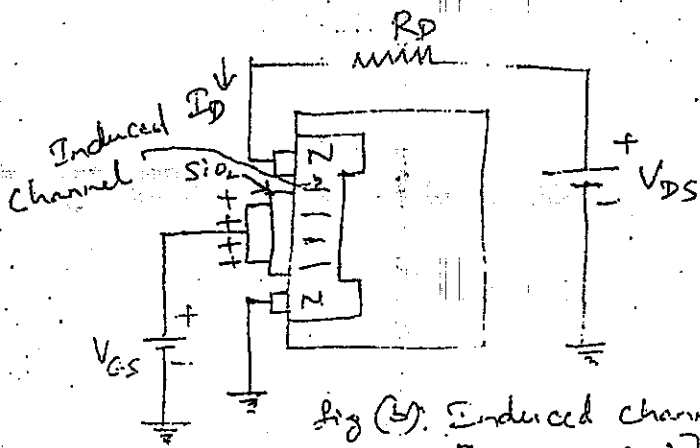 RD
Induced ID
Channel
SiO2
N
+
+
+
+
N
+
VGS
-
+
VDS
-
fig (b). Induced chann